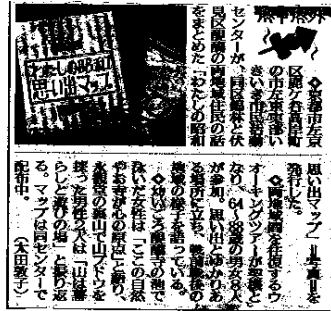 わたしの昭和
思い出マップ
◇京都市左京
区鹿ケ谷高岸町
の市左京東部い
きいき市民活動
センターが、同区錦林と伏
見区醍醐の両地域住民の話
をまとめた「わたしの昭和
思い出マップ」＝写真＝を
発行した。
◇両地域間を往復するウ
オーキングツアーが契機と
なり、64～88歳の男女8人
が参加。思い出とゆかりあ
る場所に立ち、戦前戦後の
地域の様子を語っている。
◇幼いころ醍醐寺の池で
泳いだ女性は「ここの自然
やお寺が心の原点」と語り、
永観堂の裏山で山ブドウを
採った男性2人は「山は暮
らしと遊びの場」と振り返
る。マップは同センターで
配布中。
（太田敦子）